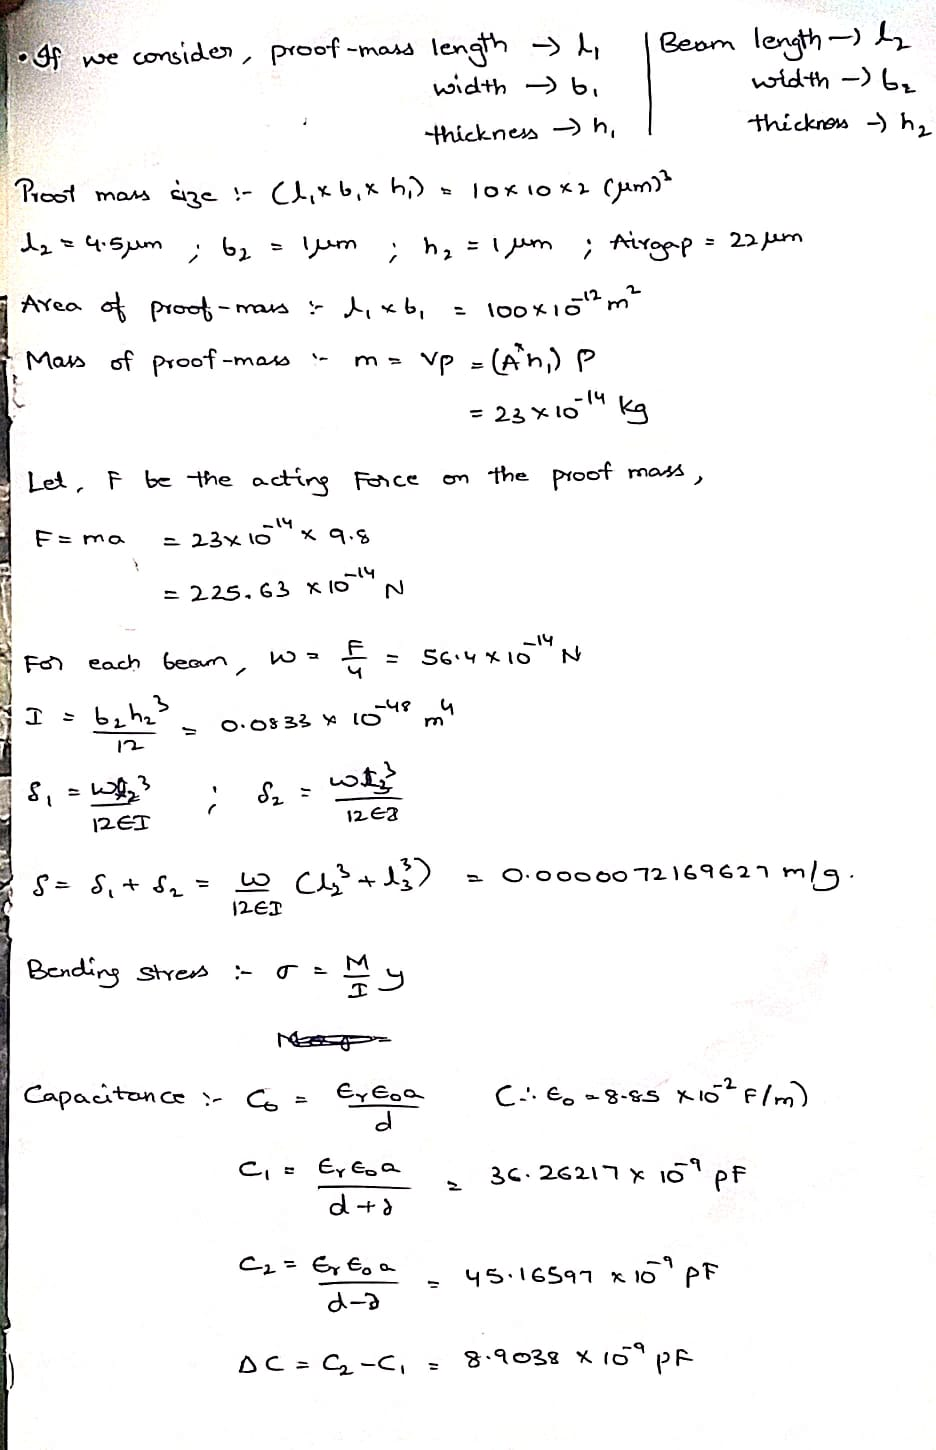 • If we consider, proof-mass length → l₁ | Beam length → l₂
width → b₁ | width → b₂
thickness → h₁ | thickness → h₂
Proof mass size :- (l₁ x b₁ x h₁) = 10 x 10 x 2 (μm)³
l₂ = 4.5μm ; b₂ = 1μm ; h₂ = 1μm ; Airgap = 22μm
Area of proof-mass :- l₁ x b₁ = 100 x 10⁻¹² m²
Mass of proof-mass :- m = Vρ = (A*h₁) ρ
= 23 x 10⁻¹⁴ kg
Let, F be the acting Force on the proof mass,
F = ma = 23 x 10⁻¹⁴ x 9.8
= 225.63 x 10⁻¹⁴ N
For each beam, W = F/4 = 56.4 x 10⁻¹⁴ N
I = b₂h₂³/12 = 0.0833 x 10⁻⁴⁸ m⁴
δ₁ = Wl₂³/12EI ; δ₂ = Wl₃³/12EI
δ = δ₁ + δ₂ = W/12EI (l₂³ + l₃³) = 0.0000072169627 m/g.
Bending stress :- σ = M/I y
Capacitance :- C₀ = εᵣε₀a/d (∵ ε₀ = 8.85 x 10⁻² F/m)
C₁ = εᵣε₀a/d+∂ = 36.26217 x 10⁻⁹ pF
C₂ = εᵣε₀a/d-∂ = 45.16597 x 10⁻⁹ pF
ΔC = C₂ - C₁ = 8.9038 x 10⁻⁹ pF